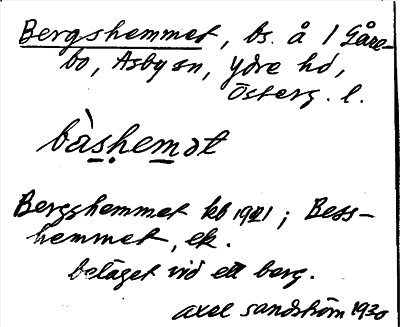 Bergshemmet, bs. å 1 Gåre-
bo, Asby sn, Ydre hd,
Österg. l.
bàs̲ḥem̲ət
Bergshemmet kb 1921; Bess-
hemmet, ek.
beläget vid ett berg.
Axel Sandström 1930